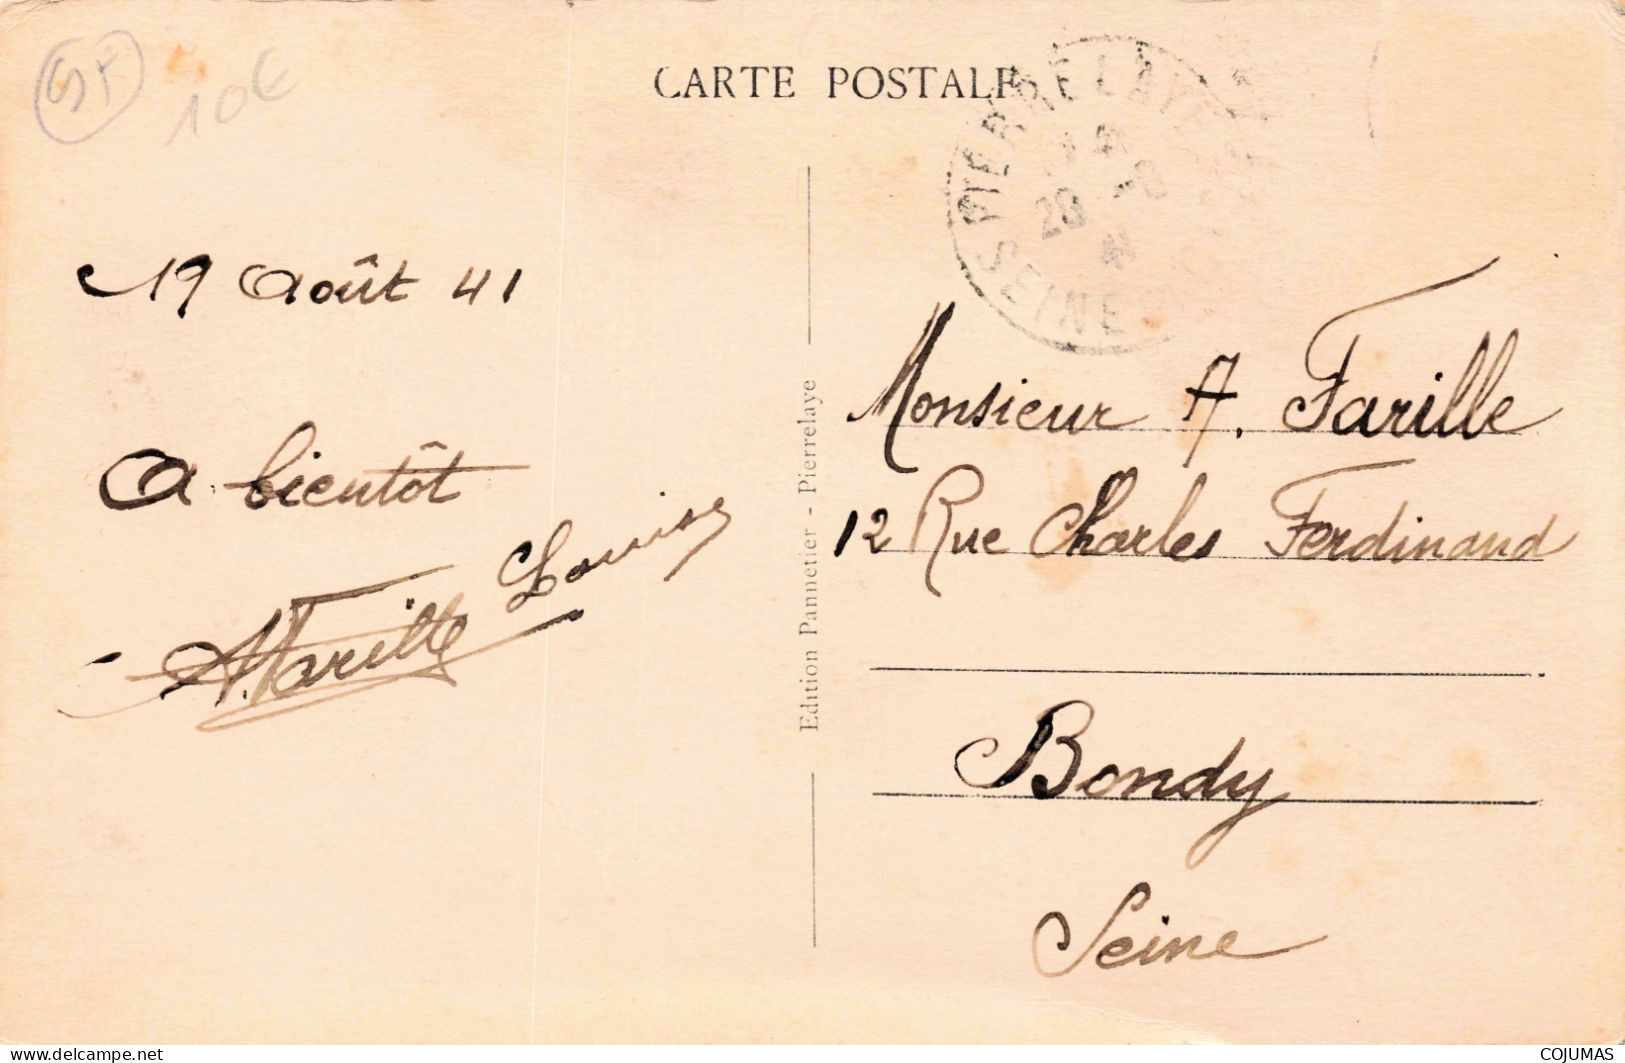 10€
CARTE POSTALE
PIERRELAYE
20 -8
41
SEINE
19 Août 41
A bientôt
Louise
A. Farille
Edition Pannetier - Pierrelaye
Monsieur A. Farille
12 Rue Charles Ferdinand
Bondy
Seine
delcampe.net
COJUMAS